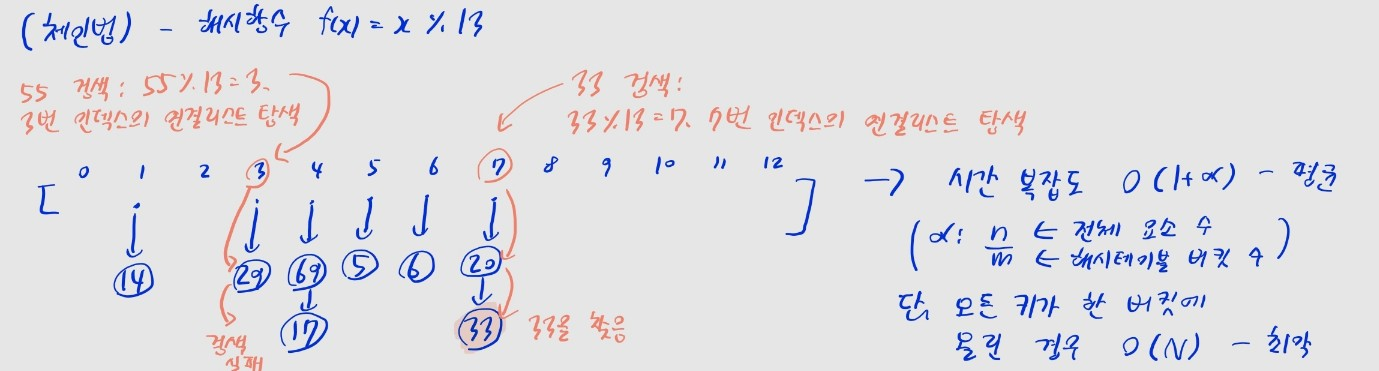 (체인법) - 해시함수 f(x) = x % 13
55 검색 : 55 % 13 = 3.
3번 인덱스의 연결리스트 탐색
33 검색 :
33 % 13 = 7. 7번 인덱스의 연결리스트 탐색
0 1 2 3 4 5 6 7 8 9 10 11 12
[ ]
14 29 69 5 6 20
17 33
검색
실패
33을 찾음
→ 시간 복잡도 O(1+α) - 평균
(α : n ← 전체 요소 수
m ← 해시테이블 버킷 수)
단, 모든 키가 한 버킷에
몰린 경우 O(N) - 최악